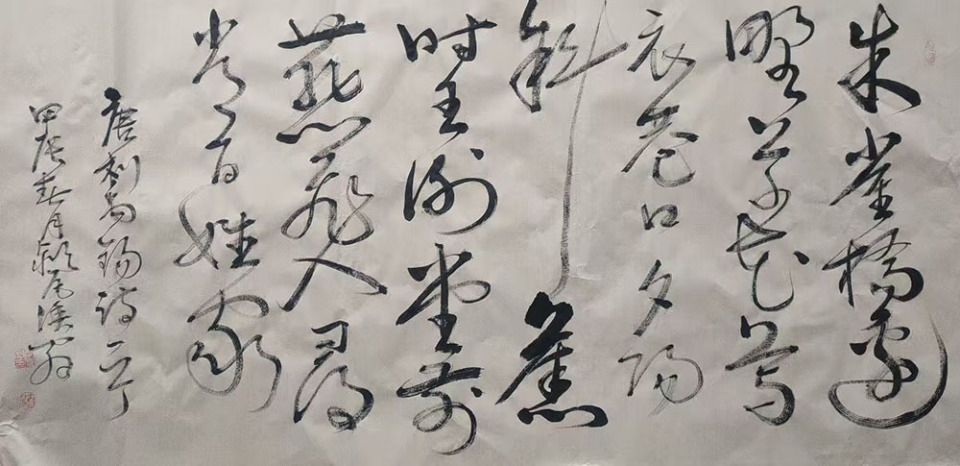 朱雀橋邊
野草花烏
衣巷口夕陽
斜舊
時王謝堂前
燕飛入尋
常百姓家
唐劉禹錫詩一首
甲辰春月